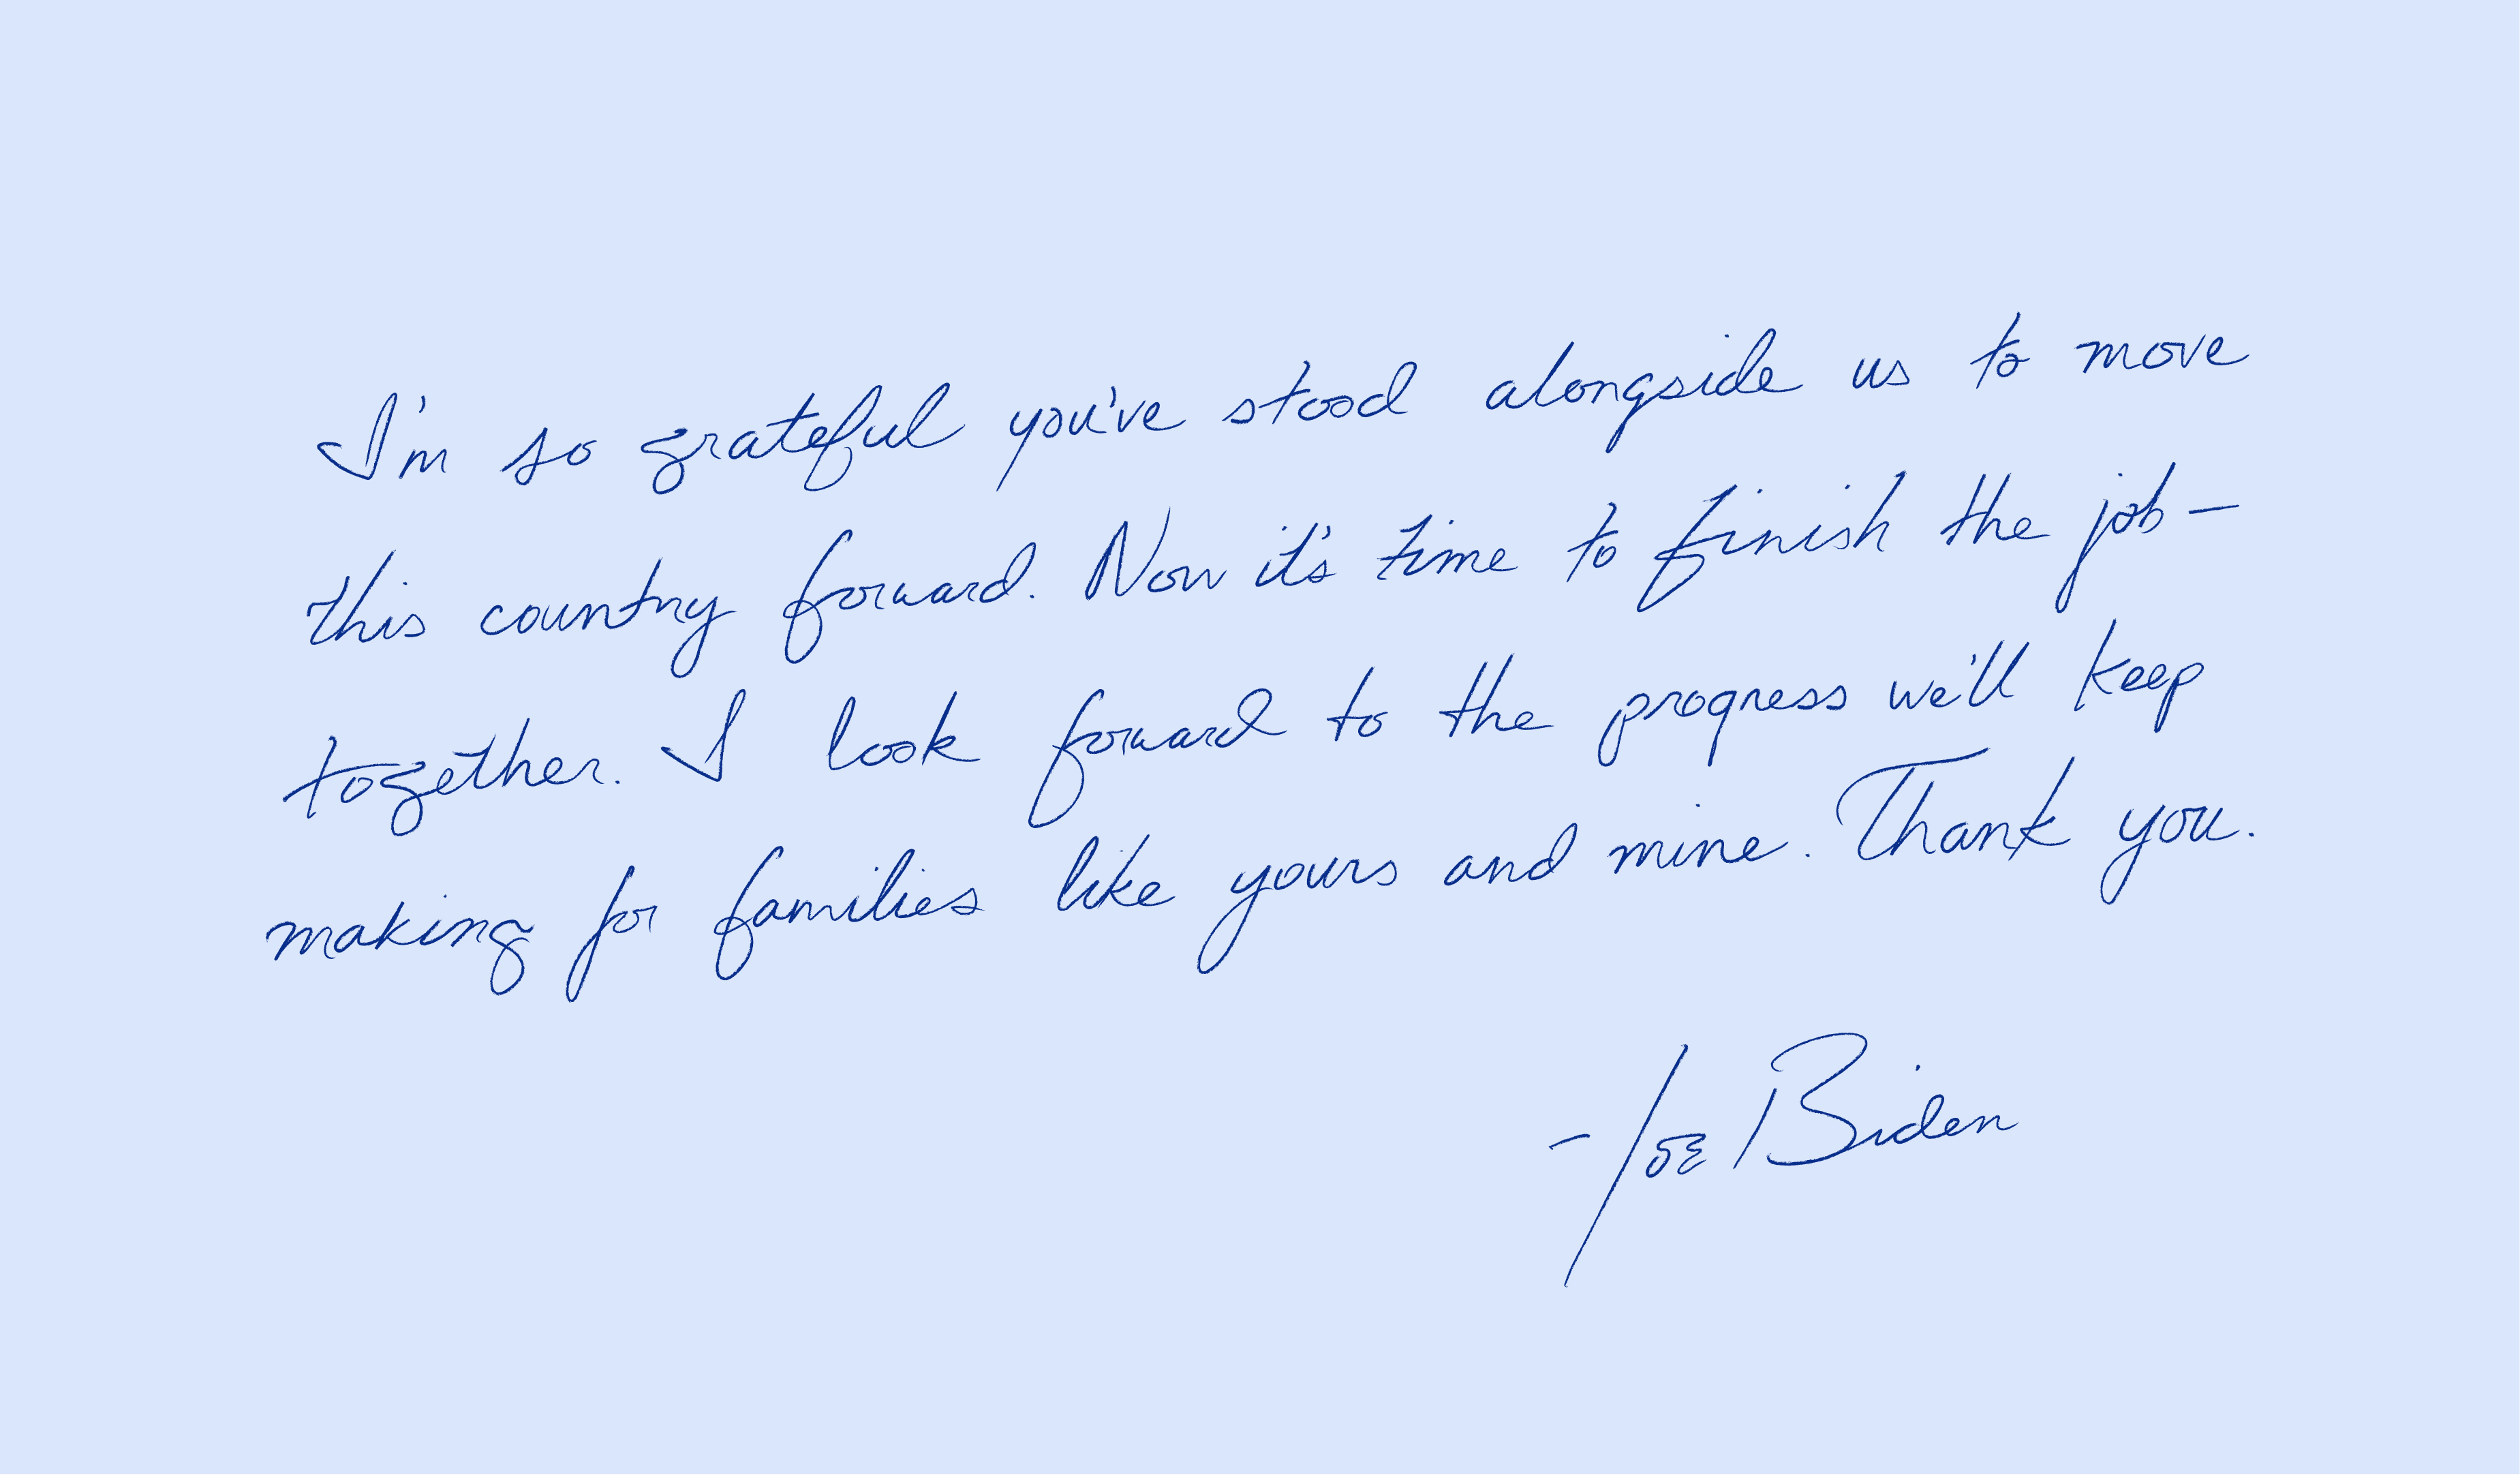 I'm so grateful you've stood alongside us to move
this country forward. Now it's time to finish the job—
together. I look forward to the progress we'll keep
making for families like yours and mine. Thank you.
-Joe Biden